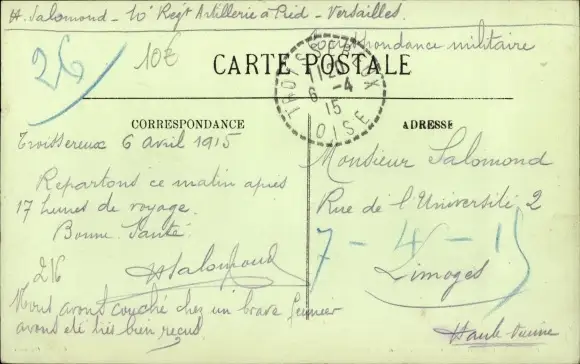 H. Salomond - 10e Regt Artillerie à Pied - Versailles.
Correspondance militaire
26
10E
CARTE POSTALE
TROISSEREUX
11 20
6 -4
15
OISE
CORRESPONDANCE
Troissereux 6 avril 1915
Repartons ce matin apres
17 heures de voyage.
Bonne Santé
HSalomond
216
Nous avons couché chez un brave fermier
avons été très bien reçus
ADRESSE
Monsieur Salomond
Rue de l'Université 2
7-4-15
Limoges
Haute Vienne